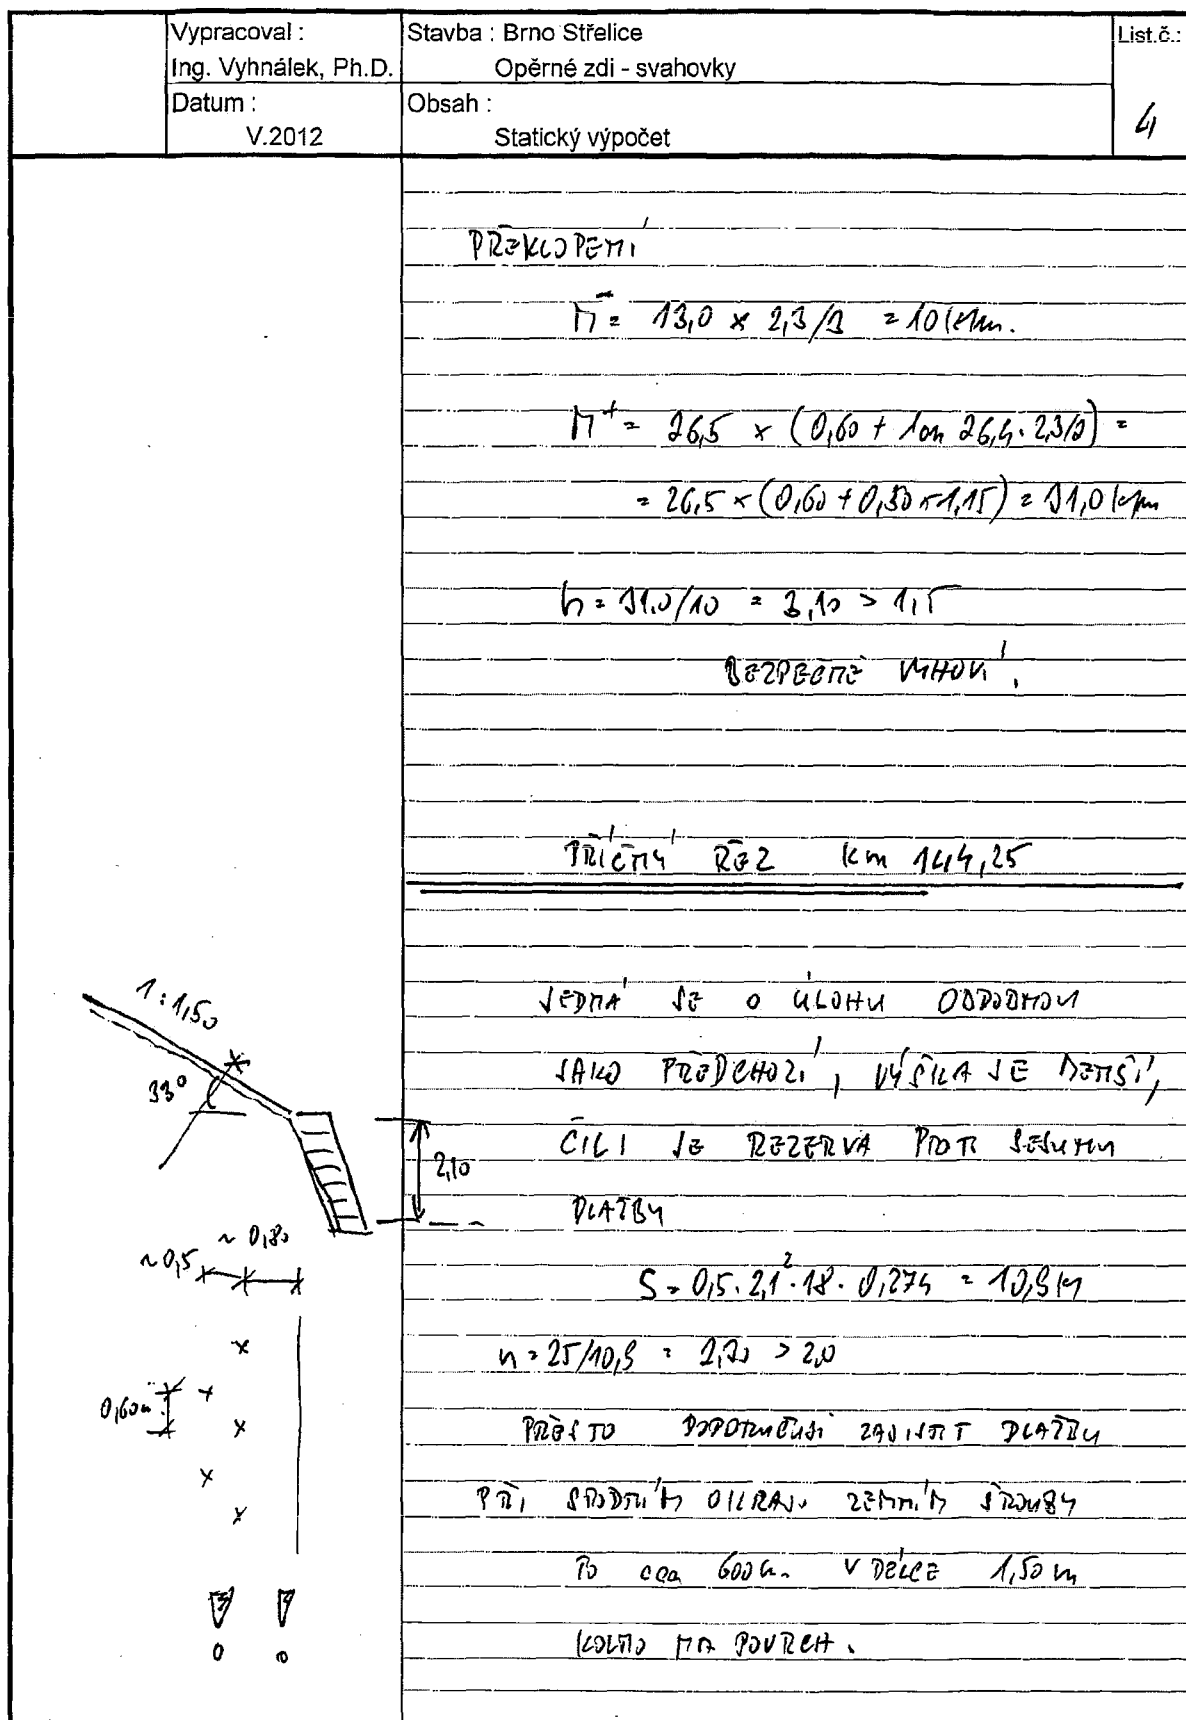 Vypracoval :
Ing. Vyhnálek, Ph.D.
Stavba : Brno Střelice
Opěrné zdi - svahovky
List.č.:
Datum :
V.2012
Obsah :
Statický výpočet
4
PŘEKLOPENÍ
M⁻ = 13,0 × 2,3/3 = 10 kNm.
M⁺ = 26,5 × (0,60 + tan 26,4 · 2,3/2) =
= 26,5 × (0,60 + 0,50 × 1,15) = 31,0 kNm
n = 31,0/10 = 3,10 > 1,5
BEZPEČNĚ VYHOVÍ.
PŘÍČNÝ ŘEZ km 144,25
JEDNÁ SE O ÚLOHU OBDOBNOU
JAKO PŘEDCHOZÍ, VÝŠKA JE MENŠÍ,
ČILI JE REZERVA PROTI SESUNU
DLAŽBY
S = 0,5 · 2,1² · 18 · 0,274 = 10,9 kN
n = 25/10,9 = 2,30 > 2,0
PŘESTO DOPORUČUJI ZAJISTIT DLAŽBU
PŘI SPODNÍM OKRAJI ZEMNÍMI ŠROUBY
PO cca 600 V DÉLCE 1,50 m
KOLMO NA POVRCH.
1:1,50
33°
2,10
~ 0,5 ~ 0,80
0,60